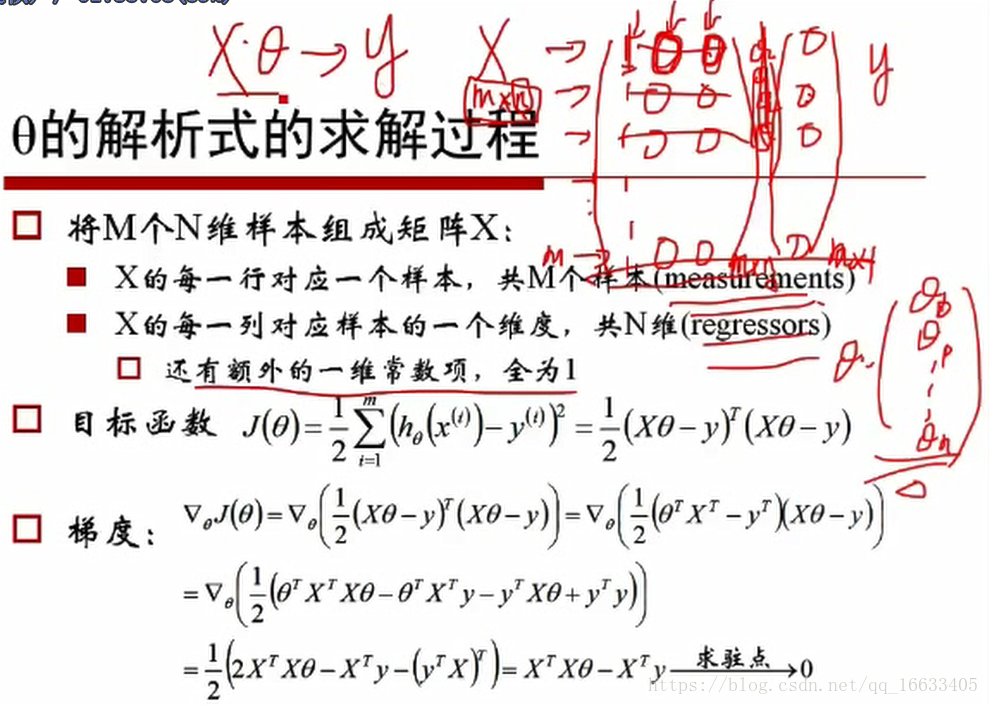 X·θ→y
X
y
m×n
θ的解析式的求解过程
将M个N维样本组成矩阵X：
m
m×1
X的每一行对应一个样本，共M个样本(measurements)
X的每一列对应样本的一个维度，共N维(regressors)
还有额外的一维常数项，全为1
θ
θ₀
θ₁
θₙ
目标函数 J(θ)=1/2 ∑_{i=1}^{m} (h_θ(x^{(i)})−y^{(i)})² = 1/2 (Xθ−y)^T (Xθ−y)
梯度： ∇_θJ(θ)=∇_θ(1/2 (Xθ−y)^T (Xθ−y))=∇_θ(1/2 (θ^T X^T −y^T)(Xθ−y))
=∇_θ(1/2 (θ^T X^T Xθ−θ^T X^T y−y^T Xθ+y^T y))
=1/2 (2X^T Xθ−X^T y−(y^T X)^T)= X^T Xθ−X^T y 求驻点→0
https://blog.csdn.net/qq_16633405